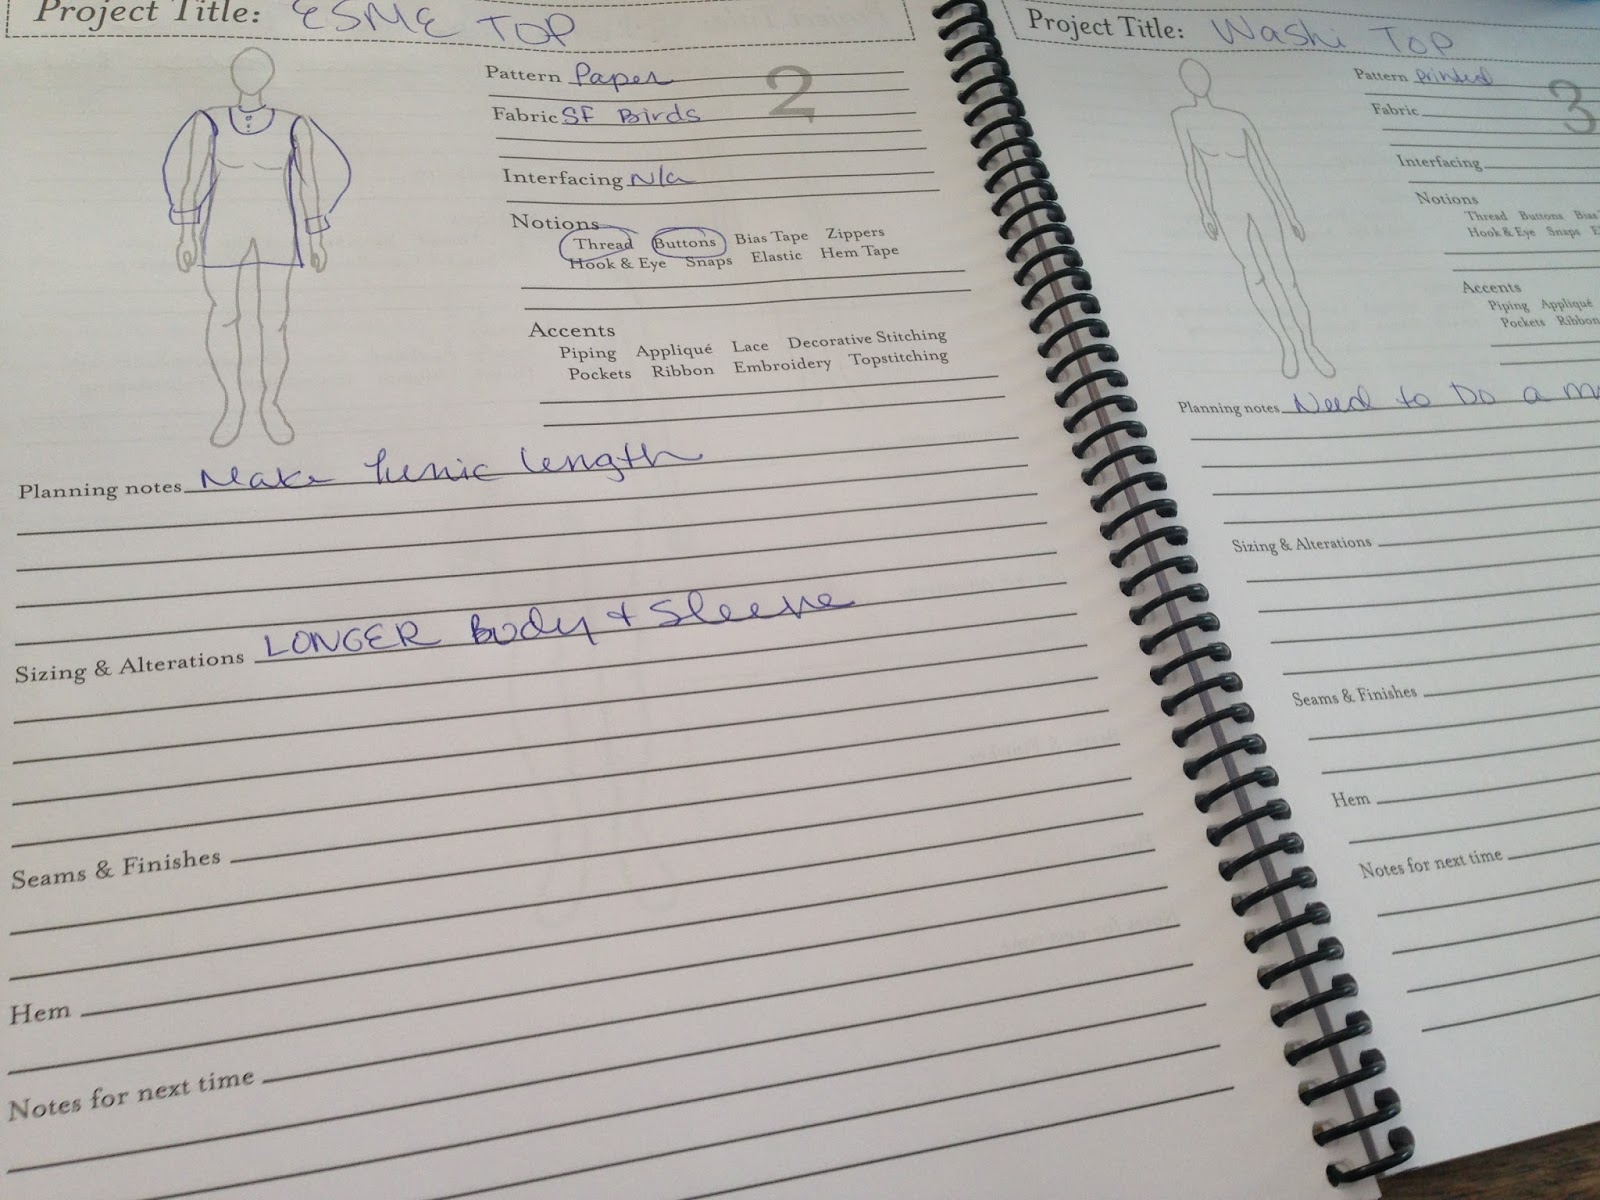 Project Title: ESME TOP
2
Pattern Paper
Fabric SF Birds
Interfacing N/a
Notions
Thread Buttons Bias Tape Zippers
Hook & Eye Snaps Elastic Hem Tape
Accents
Piping Appliqué Lace Decorative Stitching
Pockets Ribbon Embroidery Topstitching
Planning notes Make tunic length
Sizing & Alterations LONGER Body + Sleeve
Seams & Finishes
Hem
Notes for next time
Project Title: Washi Top
3
Pattern printed
Fabric
Interfacing
Notions
Thread Buttons Bias
Hook & Eye Snaps
Accents
Piping Appliqué
Pockets Ribbon
Planning notes Need to Do a
Sizing & Alterations
Seams & Finishes
Hem
Notes for next time